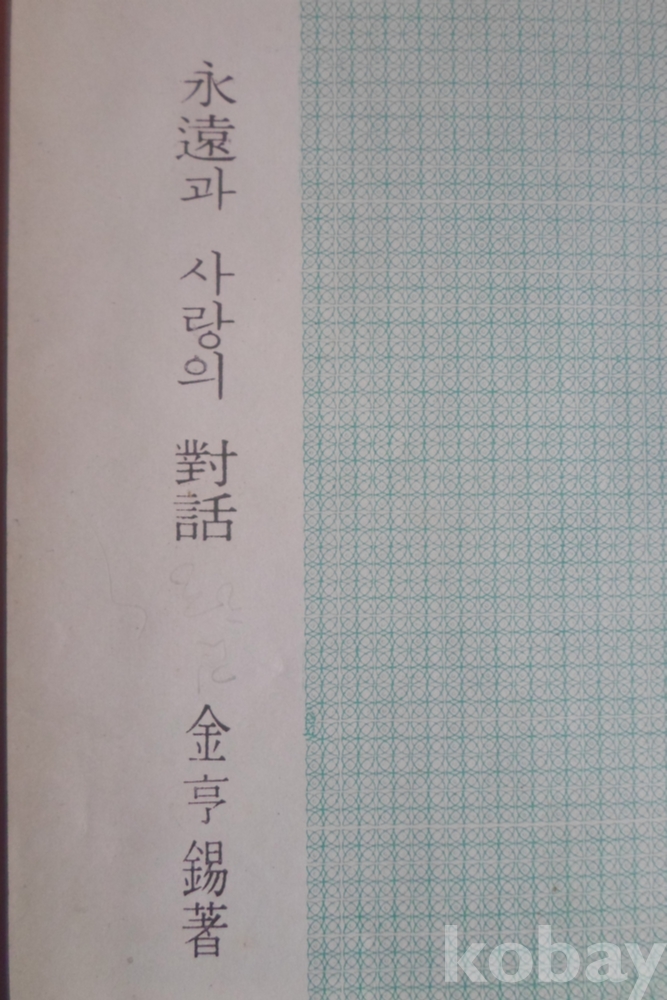 永遠과 사랑의 對話
金亨錫著
kobay